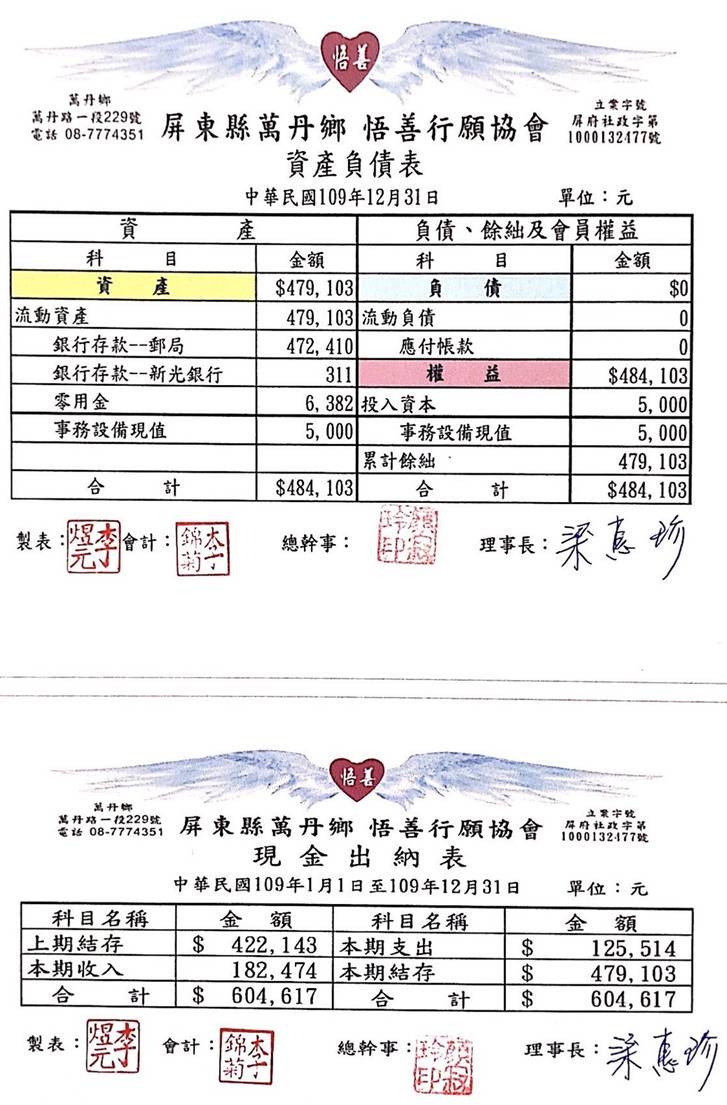 悟善
萬丹鄉
萬丹路一段229號
電話 08-7774351
屏東縣萬丹鄉 悟善行願協會
立案字號
屏府社政字第
1000132477號
資產負債表
中華民國109年12月31日 單位：元
資 產 負債、餘絀及會員權益
科 目 金額 科 目 金額
資 產 $479,103 負 債 $0
流動資產 479,103 流動負債 0
銀行存款--郵局 472,410 應付帳款 0
銀行存款--新光銀行 311 權 益 $484,103
零用金 6,382 投入資本 5,000
事務設備現值 5,000 事務設備現值 5,000
累計餘絀 479,103
合 計 $484,103 合 計 $484,103
製表：李煜元 會計：李錦菊 總幹事： 理事長：梁惠珍
悟善
萬丹鄉
萬丹路一段229號
電話 08-7774351
屏東縣萬丹鄉 悟善行願協會
立案字號
屏府社政字第
1000132477號
現金出納表
中華民國109年1月1日至109年12月31日 單位：元
科目名稱 金 額 科目名稱 金 額
上期結存 $ 422,143 本期支出 $ 125,514
本期收入 182,474 本期結存 $ 479,103
合 計 $ 604,617 合 計 $ 604,617
製表：李煜元 會計：李錦菊 總幹事： 理事長：梁惠珍